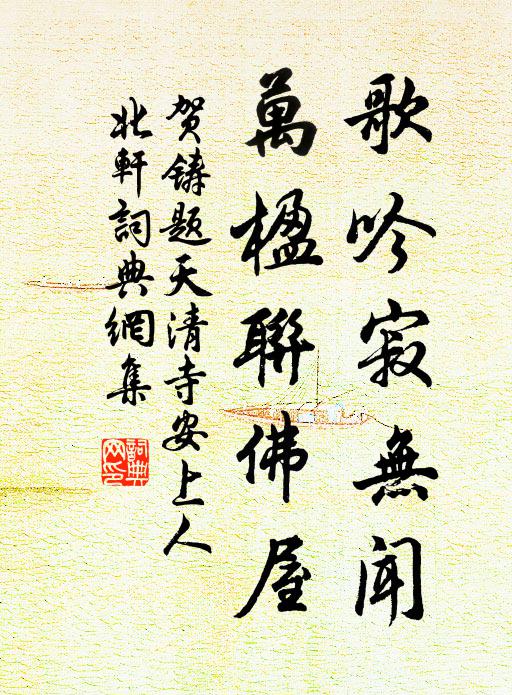 歌吟寂無聞
萬楹聯佛屋
賀鑄題天清寺安上人
北軒詞典網集
詞典网印